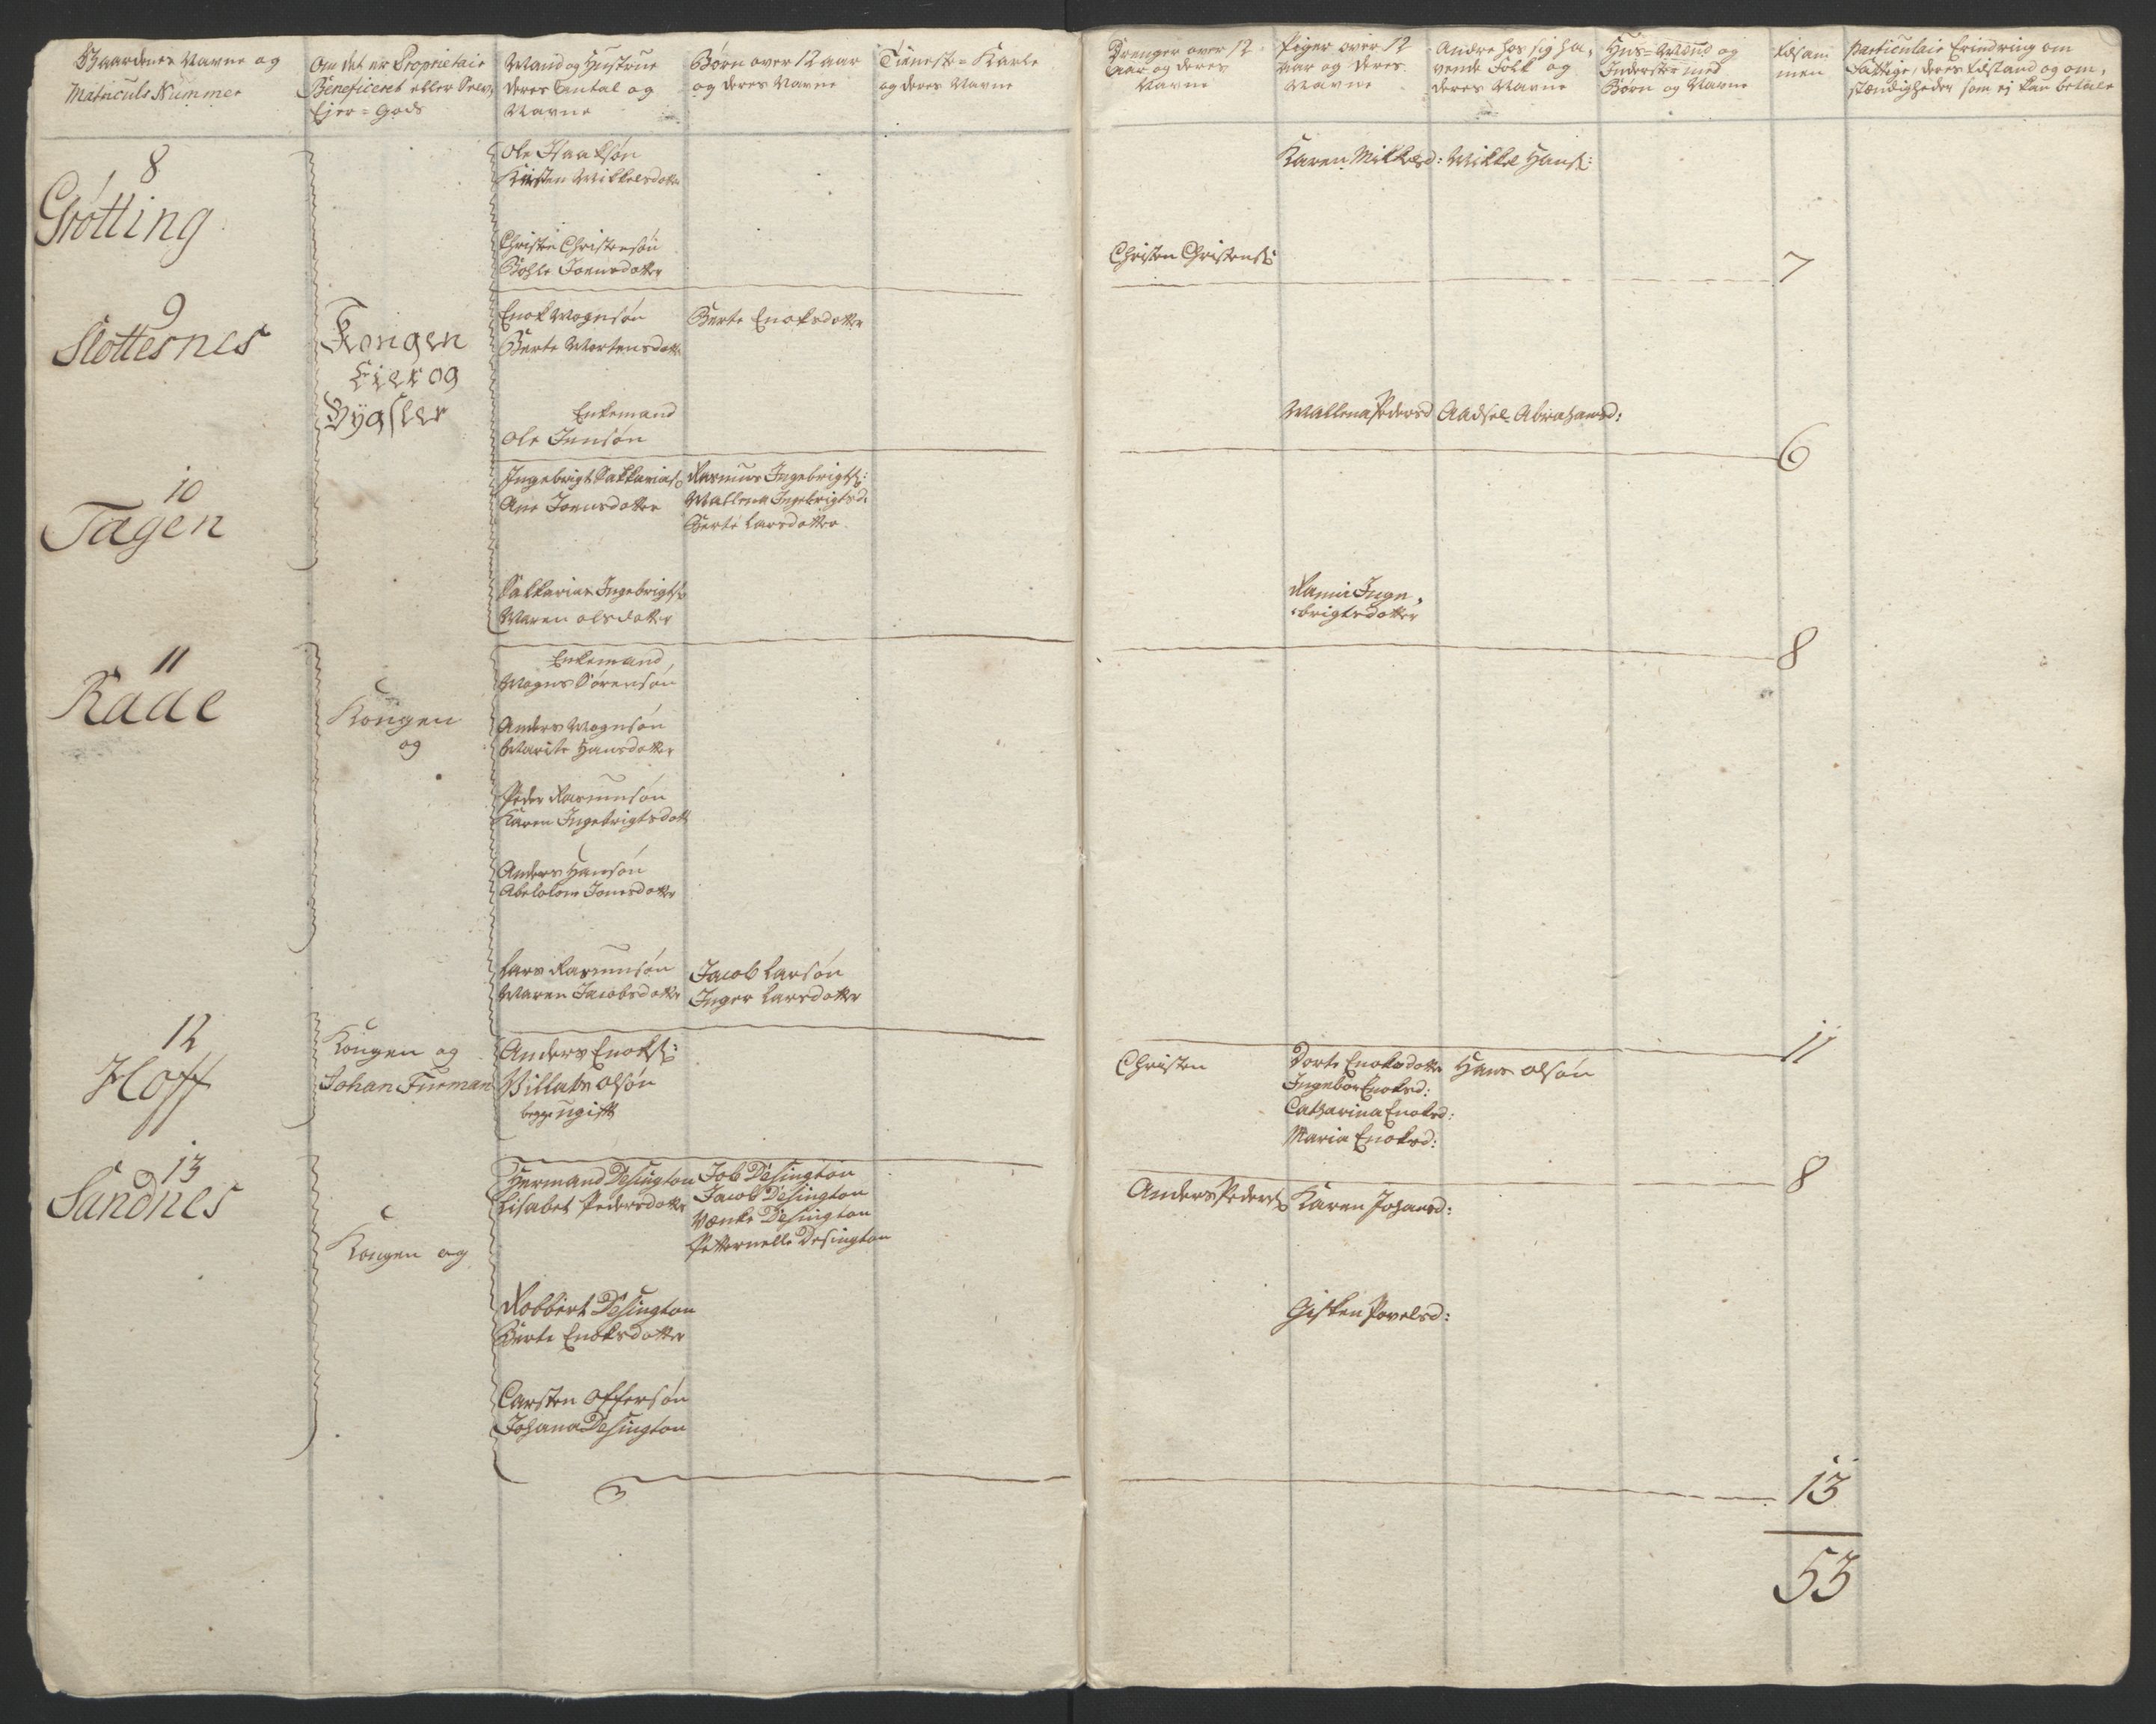 Gaardenes Navne og
Matriculs Nummer
Om det er Proprietair
Beneficeret eller Selv
Ejer=Gods
Mand og Hustrue
deres Antal og
Navne
Børn over 12 aar
og deres Navne
Tieneste=Karle
og deres Navne
Drenger over 12
Aar og deres
Navne
Piger over 12
Aar og deres
Navne
Andre hos sig ha,
vende Folk og
deres Navne
Huus=Mænd og
Inderster med
Børn og Navne
Tilsam
men
Particulair Erindring om
Fattige, deres Tilstand og om,
stændigheder som ej kan betale
8
Grøtting
Ole Isaaksøn
Kirsten Mikkelsdatter
Karen Mikkelsd:
Mikkel Hans:
Christen Christensøn
Bohle Joensdatter
Christen Christens:
7
9
Slottesnes
Kongen
Eier og
Bÿgsler
Enok Mognsøn
Berte Mortensdatt
Berte Enoksdatter
Enkemand
Ole Jensøn
Mallena Pedersd
Aadsel Abrahamsd:
6
10
Tagen
Ingebrigt Sakkarias
Ane Joensdatter
Rasmus Ingebrigts:
Mallena Ingebrigtsd:
Berte Larsdatter
Sakkarias Ingebrigts
Maren Olsdatter
Rami Inge,
brigtsdatter
8
11
Raae
Kongen
og
Enkemand
Mogns Sørensøn
Anders Mognsøn
Marite Hansdatter
Peder Rasmusøn
Karen Ingebrigtsdatt
Anders Hansøn
Abelolom Jonesdatter
Lars Rasmusøn
Maren Jacobsdatter
Jacob Larsøn
Inger Larsdatter
11
12
Hoff
Kongen og
Johan Furman
Anders Enoks:
Villabe Olsøn
begge ugift
Christen
Dorte Enoksdatter
Ingebor Enoksd:
Catharina Enoksd:
Maria Enoksd:
Hans Olsøn
8
13
Sandnes
Kongen og
Hermand Desington
Lisabet Pedersdatter
Job Desington
Jacob Desington
Venke Desington
Petternelle Desington
Anders Peders
Karen Johansd:
Robbert Desington
Berte Enoksdatter
Gisken Povelsd:
Carsten Offersøn
Johana Desington
13
53